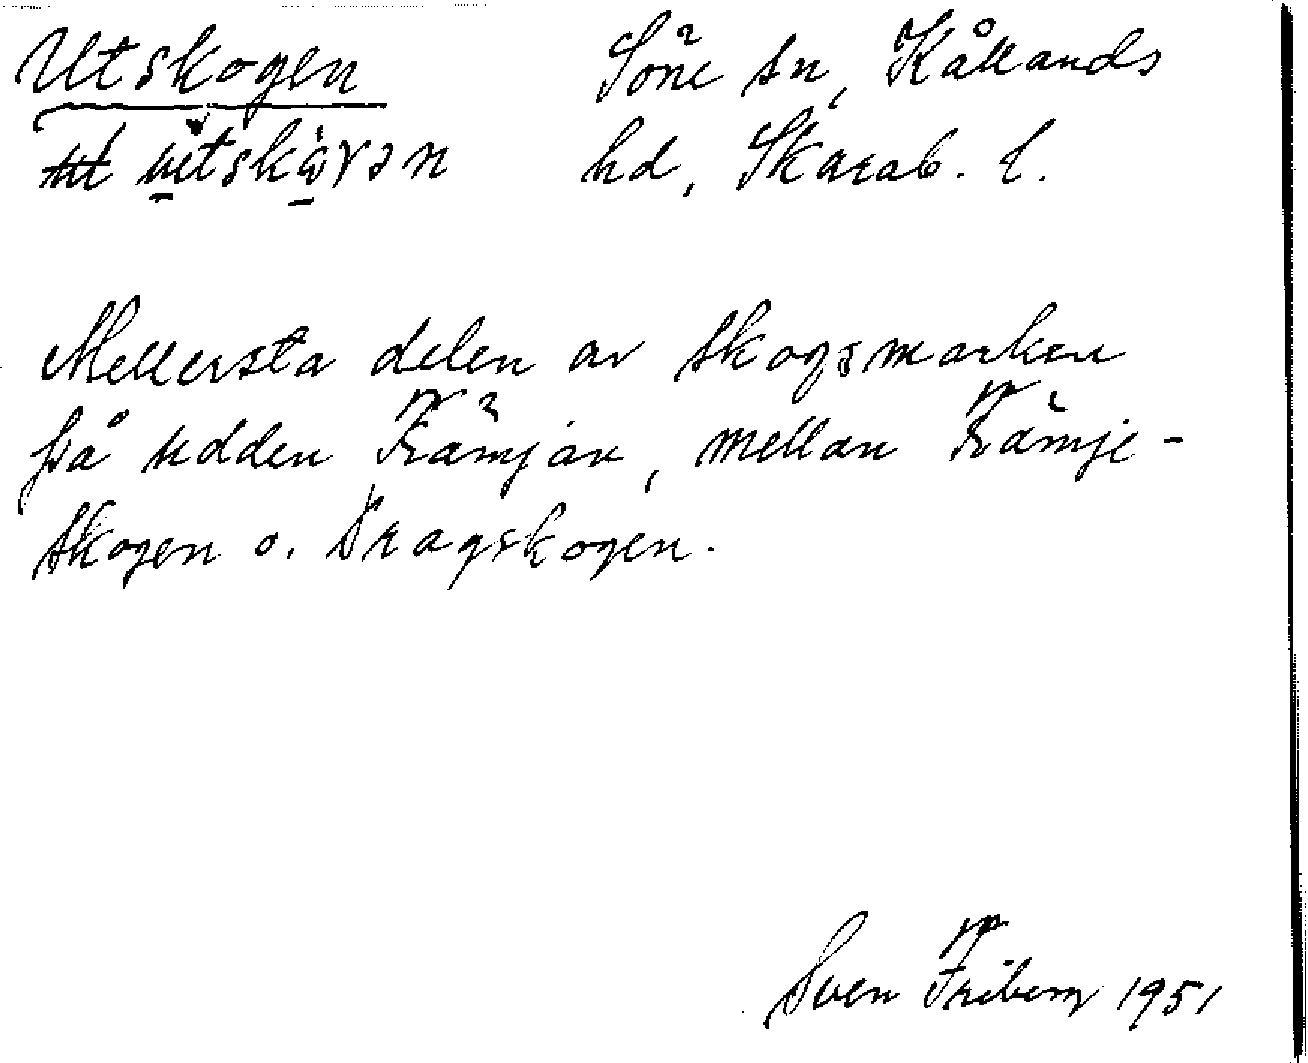 Utskogen Söne sn, Kållands
hd, Skarab. l.
Mellersta delen av skogsmarken
på udden Främjan, mellan Främje-
skogen o. Dragskogen.
Sven Friberg 1951